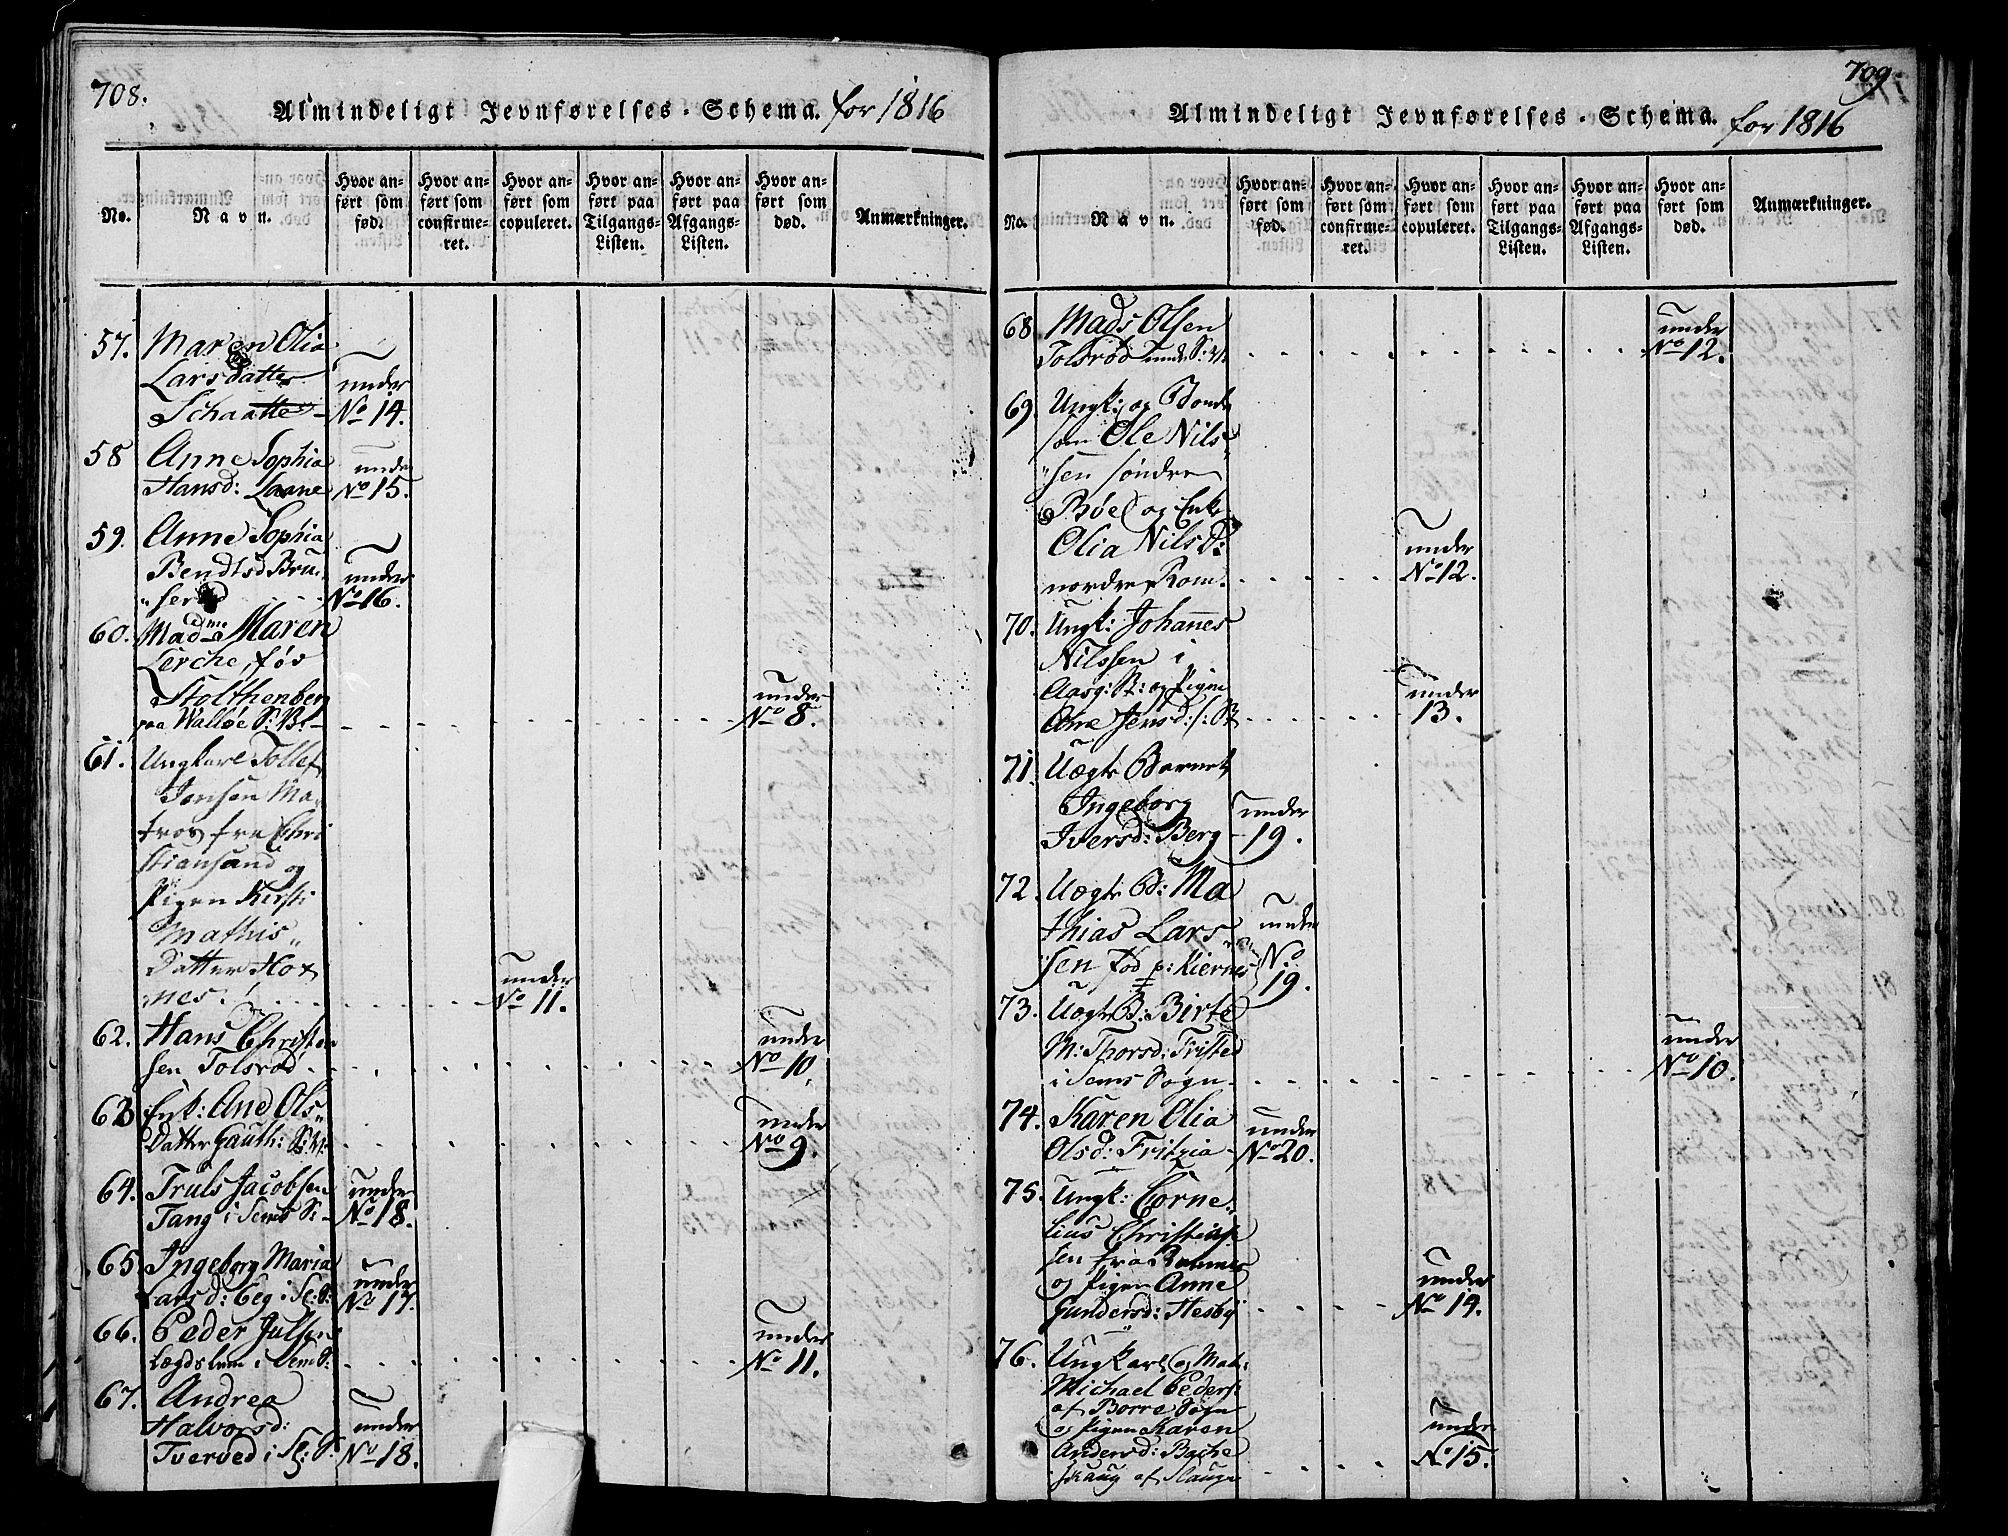 708.
Almindeligt Jevnførelses-Schema. for 1816
No.
Navn.
Hvor anført som fød.
Hvor anført som confirmeret.
Hvor anført som copuleret.
Hvor anført paa Tilgangs-Listen.
Hvor anført paa Afgangs-Listen.
Hvor anført som død.
Anmærkninger.
57. Maren Olia
Larsdatter under
Schaatte No 14.
58 Anne Sophia under
Hansd: Laane No 15.
59. Anne Sophia
Bendtsd Bru„ under
„serød No 16.
60. Madme Maren
Lerche, fød
Stolthenberg under
paa Walløe S: No 8.
61. Ungkarl Tollef
Jonsen Ma
tros fra Chri
stiansand og
Pigen Kirsti
Mathis„
Datter Hox under
nes. No 11.
62. Hans Christen under
sen Tolsrød No 10.
63 Enk: Ane Ols„ under
Datter Gauth: No 9.
64. Truls Jacobsen under
Tang i Sems S: No 18.
65. Ingeborg Maria under
Larsd: Eeg i Se: S: No 17.
66. Peder Julsen under
Lægdslem i Sem S: No 11.
67. Andrea
Halvorsd: under
Tverved i Se: S. No 18.
709.
Almindeligt Jevnførelses-Schema. for 1816
No.
Navn.
Hvor anført som fød.
Hvor anført som confirmeret.
Hvor anført som copuleret.
Hvor anført paa Tilgangs-Listen.
Hvor anført paa Afgangs-Listen.
Hvor anført som død.
Anmærkninger.
68. Mads Olsen under
Tolsrød No 12.
69. Ungk: og Bonde
søn Ole Nils„
„sen søndre
Bøe og Enke
Olia Nilsd: under
nordre Rom. No 12.
70. Ungk: Johannes
Nilssen i
Aasg: St: og Pigen under
Ane Jensd: 13.
71. Uægte Barnet
Ingeborg under
Iversd: Berg 19.
72. Uægte B: Ma
thias Lars under
sen fød p: Kiernes No 19.
73. Uægte B: Birte
M: Thorsd: Tristed under
i Sems Sogn No 10.
74. Karen Olia under
Olsd: Fritzia No 20.
75. Ungk: Corne„
lius Christian
sen fra
og Pigen Anne under
Gundersd: Hesby No 14.
76. Ungkarl og Mat:
Michael Peders:
af Borre Sogn
og Pigen Karen under
Andersd: Bache No 15.
skaug af Slaugn